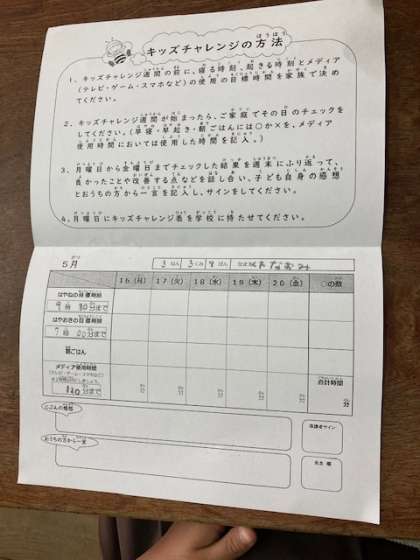 キッズチャレンジの方法
1、キッズチャレンジ週間の前に、寝る時刻、起きる時刻とメディア
(テレビ・ゲーム・スマホなど)の使用の目標時間を家族で決め
てください。
2、キッズチャレンジ週間が始まったら、ご家庭でその日のチェックを
してください。(早寝・早起き・朝ごはんには○か×を、メディア
使用時間においては使用した時間を記入。)
3、月曜日から金曜日までチェックした結果を週末にふり返って、
良かったことや改善する点などを話し合い、子ども自身の感想
とおうちの方から一言を記入し、サインをしてください。
4、月曜日にキッズチャレンジ表を学校に持たせてください。
5月
16(月) 17(火) 18(水) 19(木) 20(金) ○の数
はやねの目標時刻
9時30分まで
はやおきの目標時刻
7時00分まで
朝ごはん
メディア使用時間
120分まで
合計時間
分 分 分 分 分 分
じぶんの感想
保護者サイン
おうちの方から一言
先生印